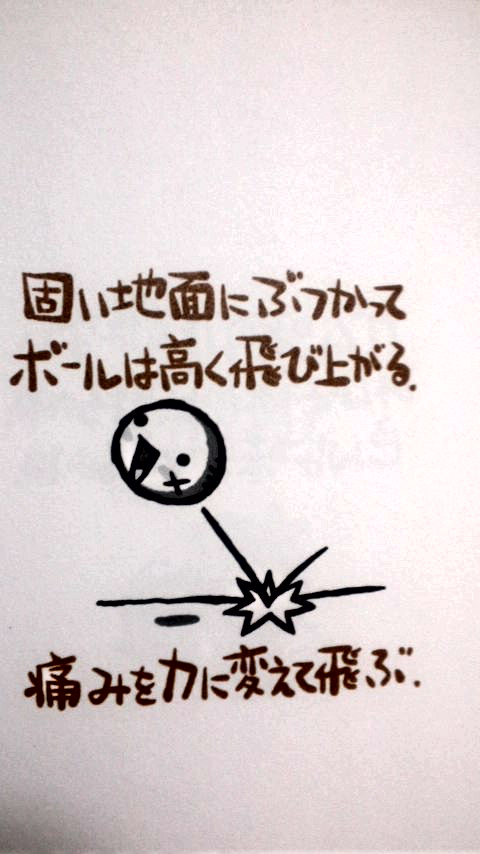 固い地面にぶつかって
ボールは高く飛び上がる.
痛みを力に変えて飛ぶ.